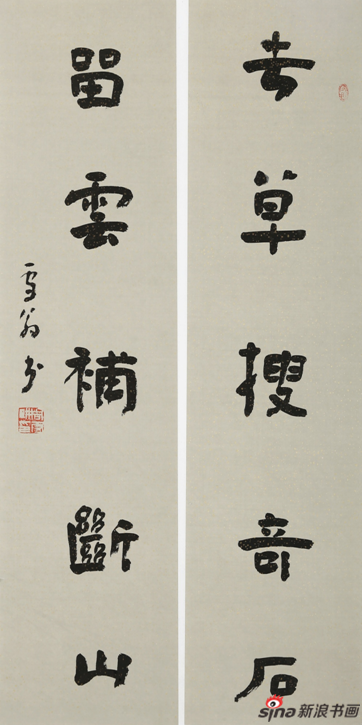 去草搜奇石
留雲補斷山
雪翁书
sina 新浪书画